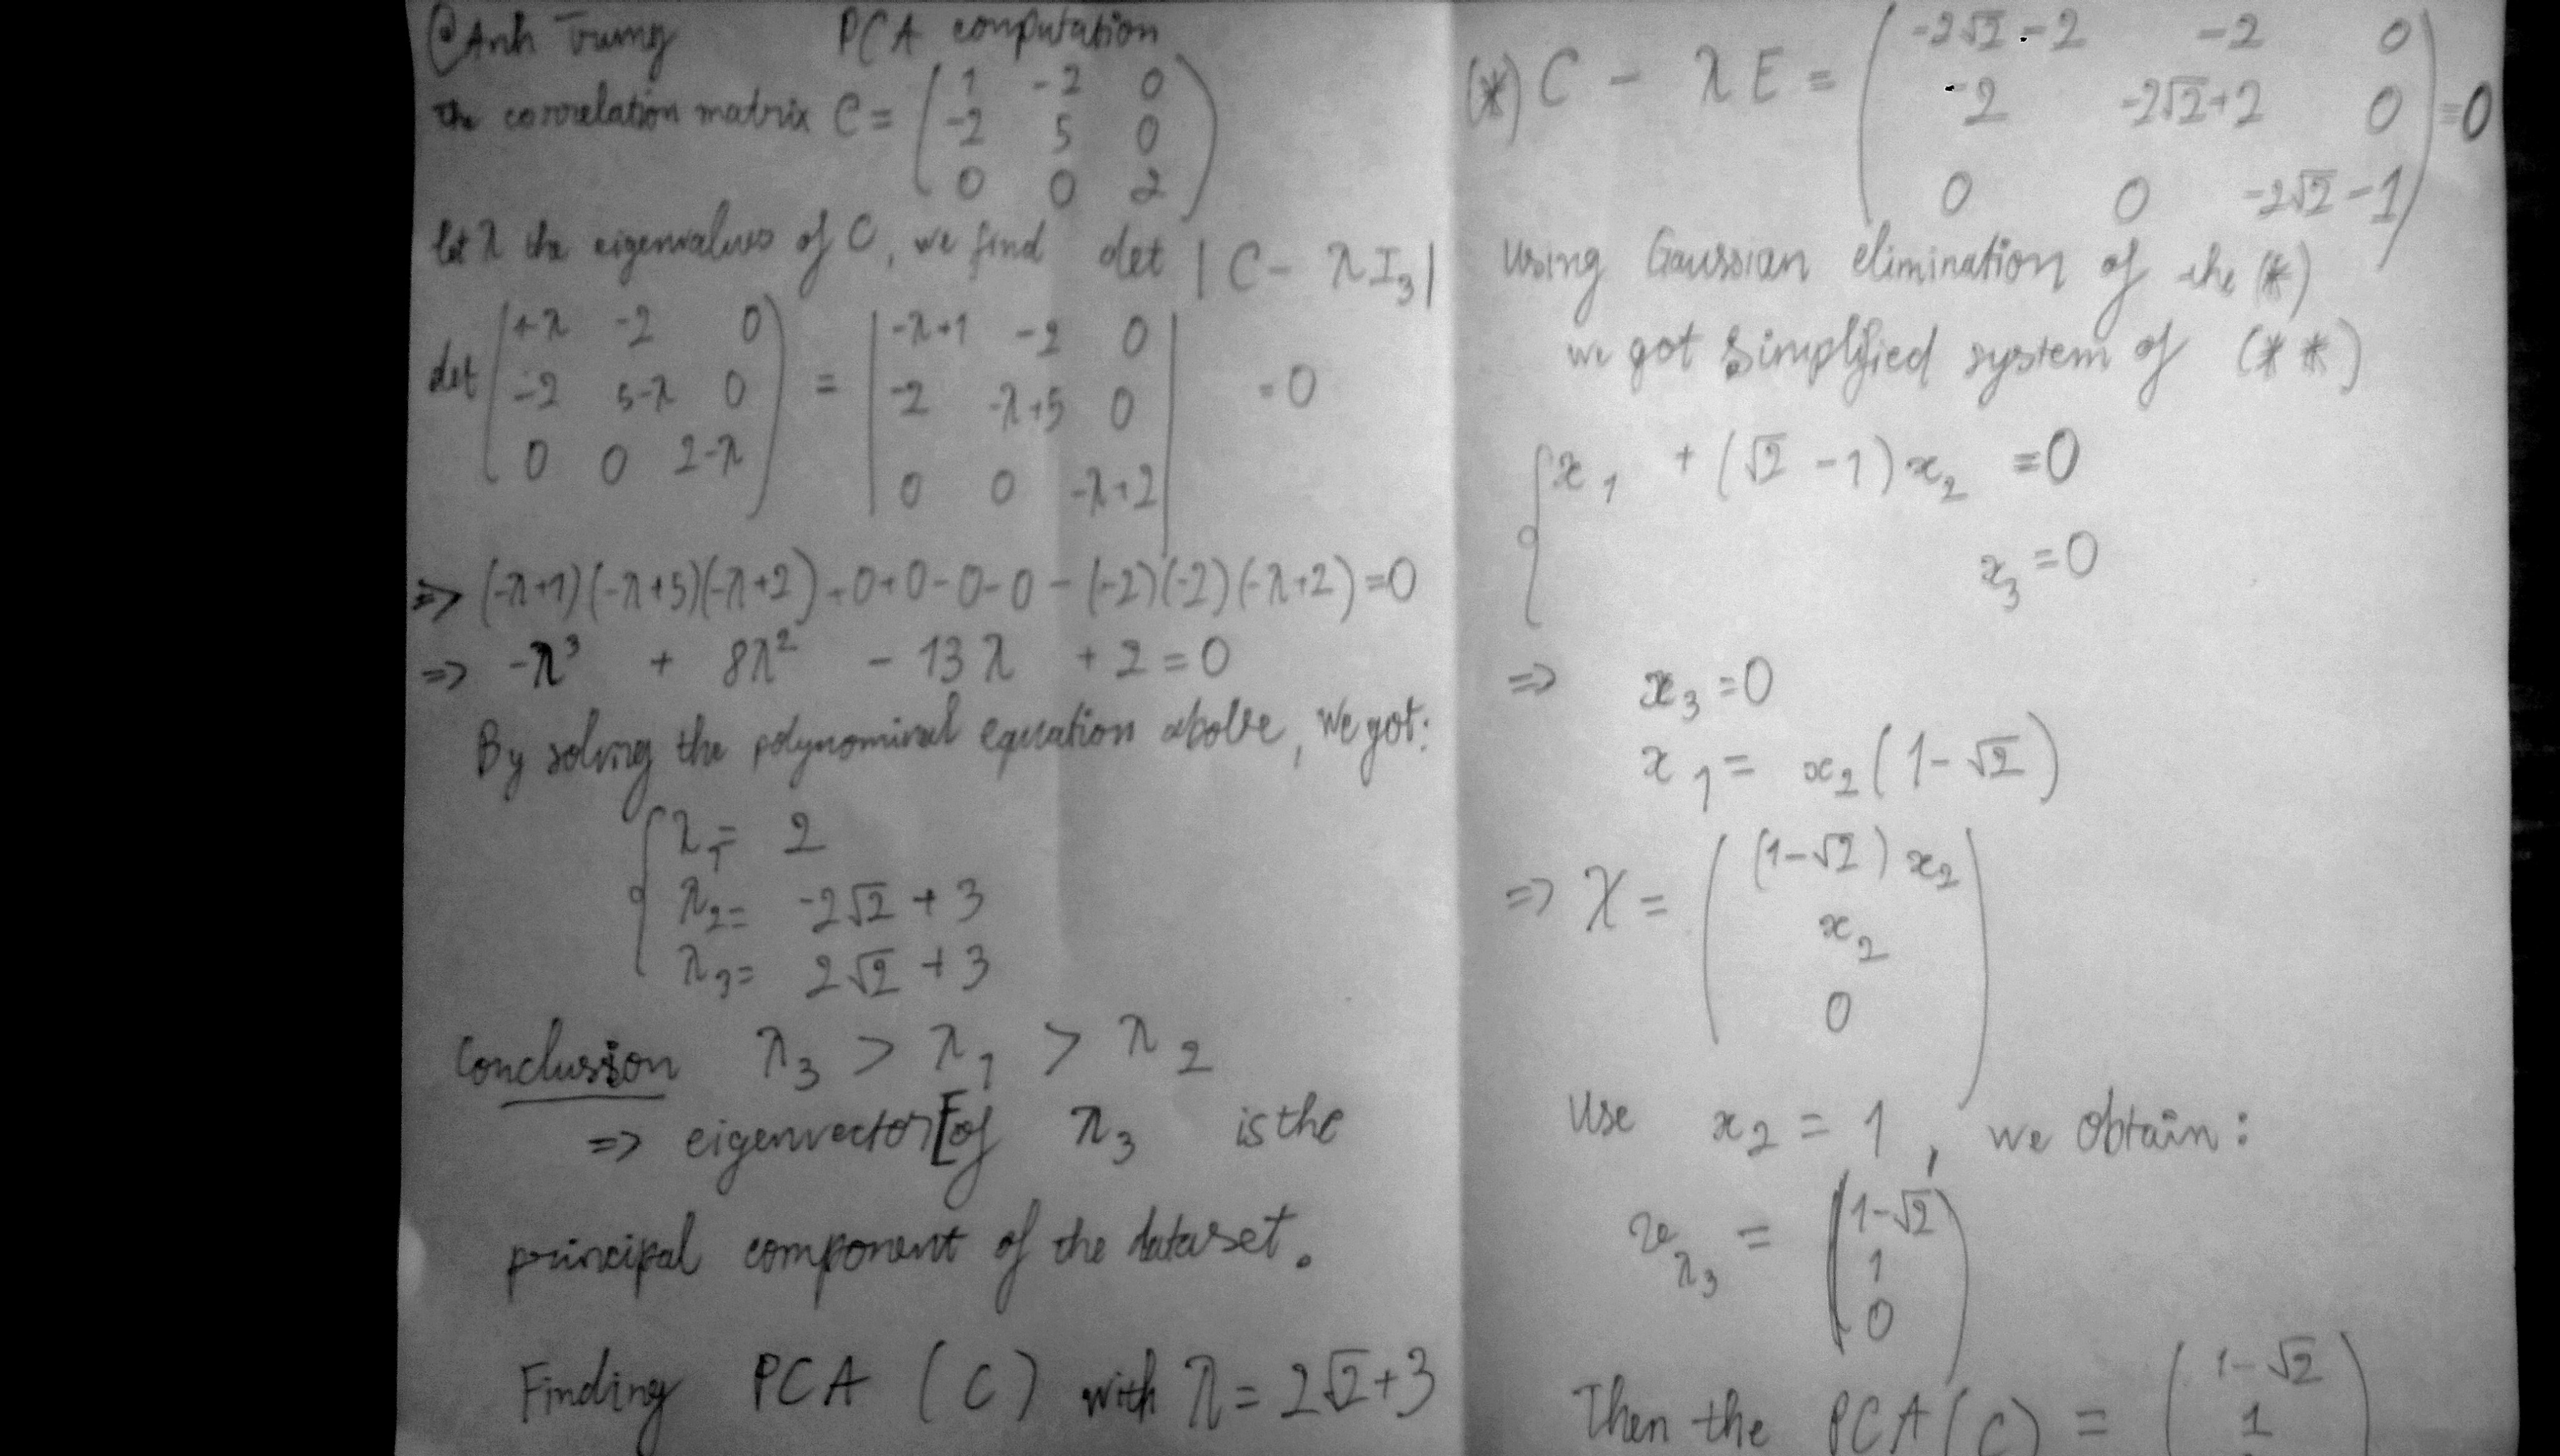 @Anh Trung PCA computation
The correlation matrix C = ( 1 -2 0
-2 5 0
0 0 2 )
let λ the eigenvalues of C, we find det | C - λI₃ |
det ( 1-λ -2 0
-2 5-λ 0
0 0 2-λ ) = | -λ+1 -2 0
-2 -λ+5 0
0 0 -λ+2 | = 0
=> (-λ+1)(-λ+5)(-λ+2)+0+0-0-0-(-2)(-2)(-λ+2)=0
=> -λ³ + 8λ² - 13λ + 2 = 0
By solving the polynominal equation above, we got:
{ λ₁ = 2
λ₂ = -2√2 + 3
λ₃ = 2√2 + 3
Conclussion λ₃ > λ₁ > λ₂
=> eigenvector [of λ₃ is the
principal component of the dataset.
Finding PCA (C) with λ = 2√2+3
(*) C - λE = ( -2√2-2 -2 0
-2 -2√2+2 0
0 0 -2√2-1 ) = 0
Using Gaussian elimination of the (*)
we got simplified system of (**)
{ x₁ + (√2 - 1) x₂ = 0
x₃ = 0
=> x₃ = 0
x₁ = x₂ (1-√2)
=> X = ( (1-√2) x₂
x₂
0 )
Use x₂ = 1, we obtain:
v_λ₃ = ( 1-√2
1
0 )
Then the PCA(C) = ( 1-√2
1